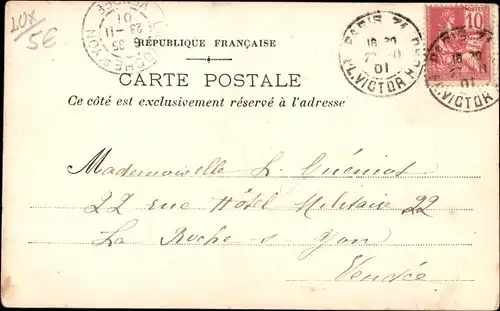 LUX
5E
RÉPUBLIQUE FRANÇAISE
CARTE POSTALE
Ce côté est exclusivement réservé à l'adresse
PARIS 71
01
PL. VICTOR
10
Mademoiselle L. Guéniot
22 rue Hôtel Militaire 22
La Roche-s-Yon
Vendée